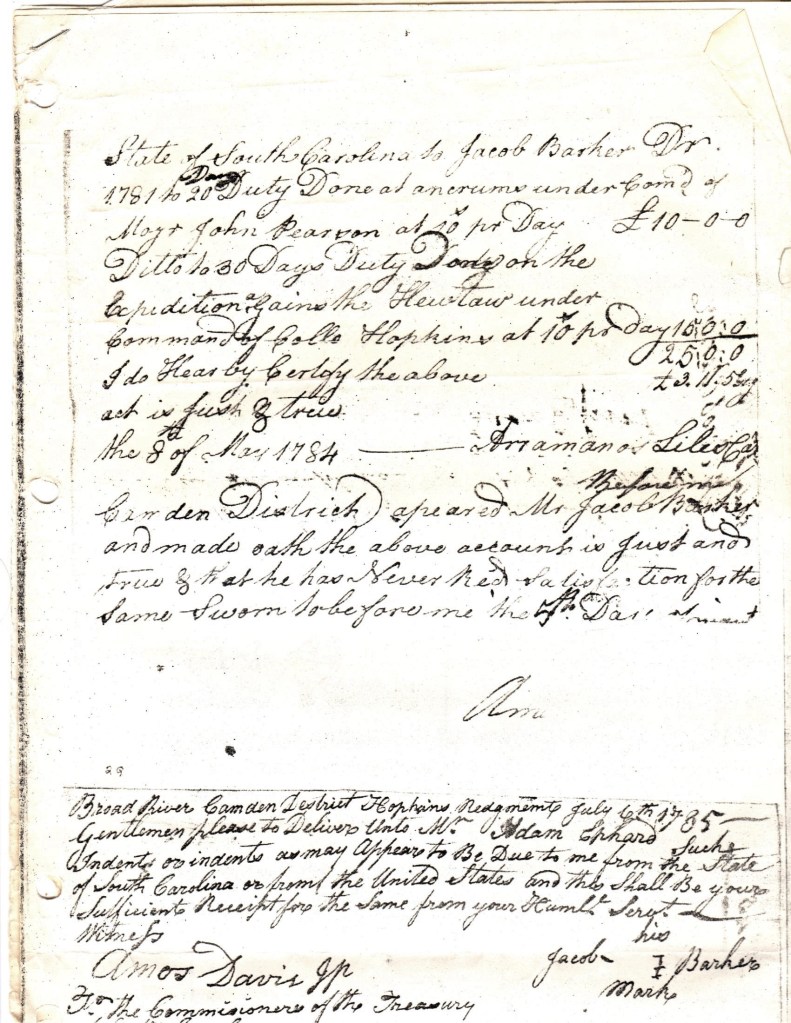 State of South Carolina to Jacob Barker Dr.
Days
1781 to 20 Duty Done at ancrums under Comd of
Mayr John Pearson at 10s pr Day £10-0-0
Ditto to 30 Days Duty Done on the
Expedition againe the Hewtaw under
Command of Collo Hopkins at 10s pr day 15,0,0
25,0,0
I do Hearby Certefy the above £3.11,5
act is Just & true
the 8th of May 1784 — Arramanos Liles
Before me
Camden District) apeared Mr Jacob Barker
and made oath the above account is Just and
true & that he has Never Red Satisfaction for the
Same Sworn to before me the Day
Am
29
Broad River Camden District Hopkins Redgment July 6th 1785 —
Gentlemen please to Deliver Unto Mr Adam Ephard Such
Indents or indents as may Appear to Be Due to me from the State
of South Carolina or from the United States and this Shall Be your
Sufficient Receipt for the Same from your Humbl Servt
Witness his
Amos Davis JP Jacob I Barker
Mark
To, the Commisioners of the Treasury